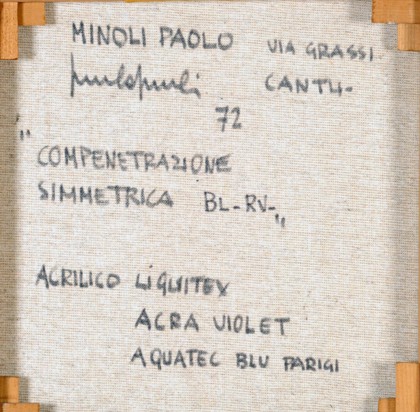 MINOLI PAOLO VIA GRASSI
CANTU-
72
"COMPENETRAZIONE
SIMMETRICA BL-RV-"
ACRILICO LIQUITEX
ACRA VIOLET
AQUATEC BLU PARIGI